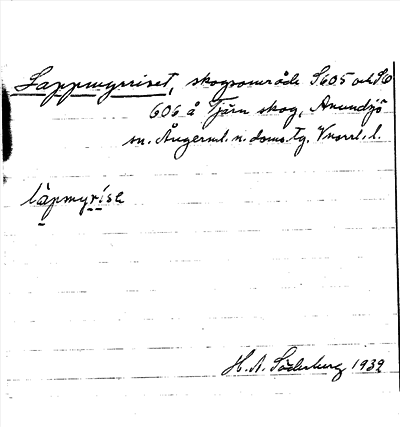 Lappmyrriset, skogsområde S605 och S6
606 å Tjärn skog, Anundsjö
sn. Ångerml. n. doms.tg. Vnorrl. l.
làpmyrìse
H. A. Söderberg 1932